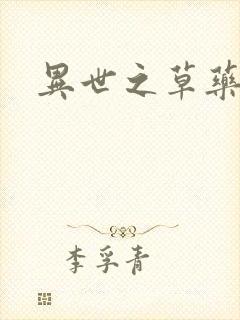 異世之草藥
李孚青